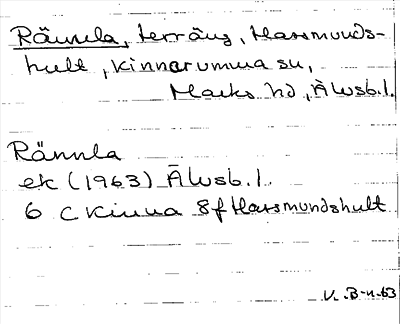 Rännla, terräng, Hassmunds-
hult, Kinnarumma sn,
Marks hd, Älvsb. l.
Rännla
ek (1963) Älvsb. l.
6 C Kinna 8f Hassmundshult
V. B-n. 63